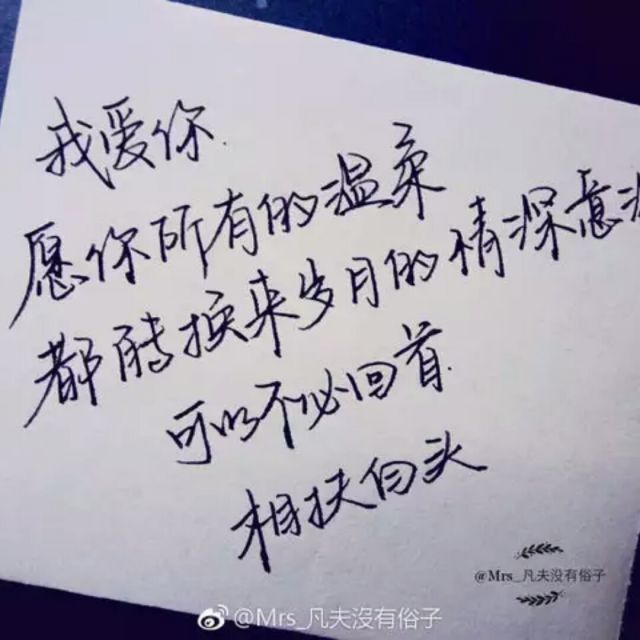 我爱你.
愿你所有的温柔
都能换来岁月的情深意
可以不必回首.
相扶白头
@Mrs_凡夫没有俗子
@Mrs_凡夫沒有俗子